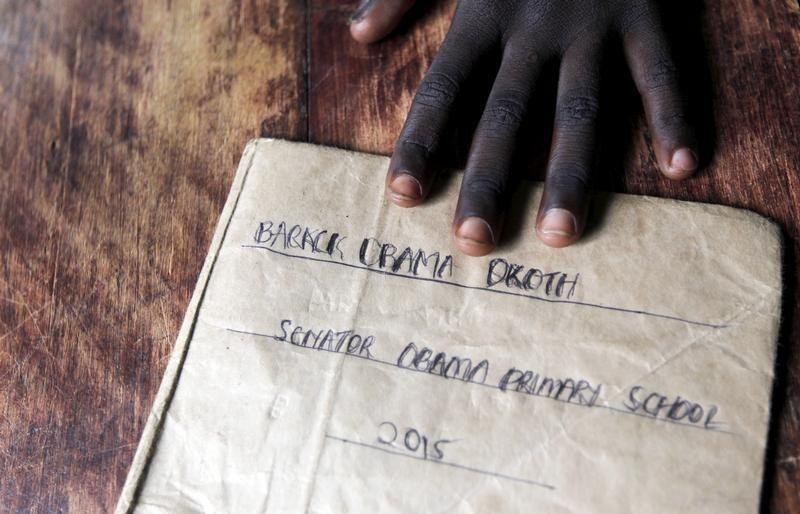 BARACK OBAMA OKOTH
SENATOR OBAMA PRIMARY SCHOOL
2015